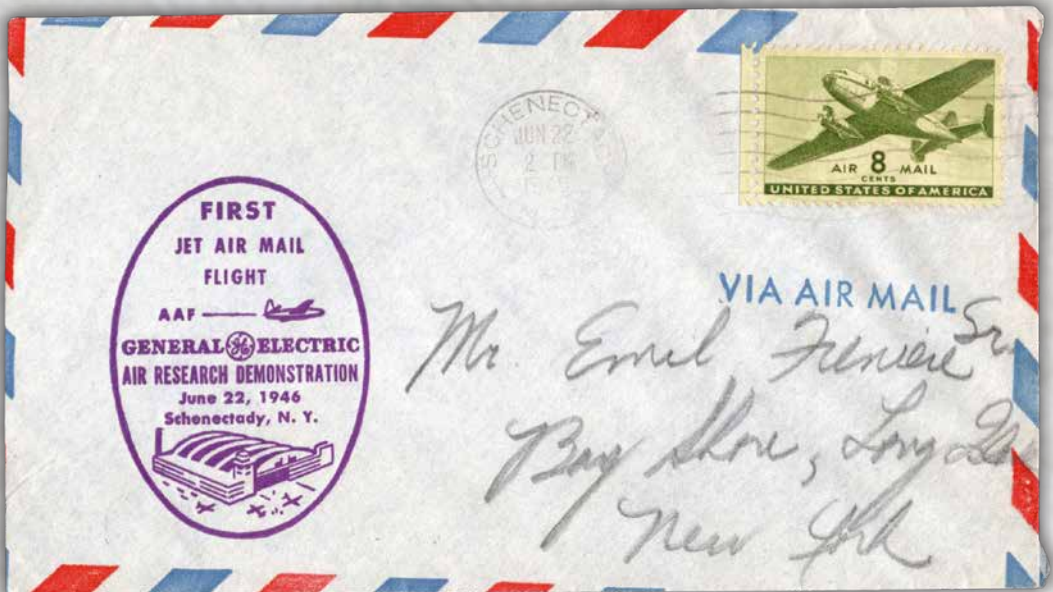 SCHENECTAD
JUN 22
2 PM
AIR 8 MAIL
CENTS
UNITED STATES OF AMERICA
FIRST
JET AIR MAIL
FLIGHT
AAF
GENERAL GE ELECTRIC
AIR RESEARCH DEMONSTRATION
June 22, 1946
Schenectady, N. Y.
VIA AIR MAIL
Mr. Emil Sr.
Bay Shore, Long
New York